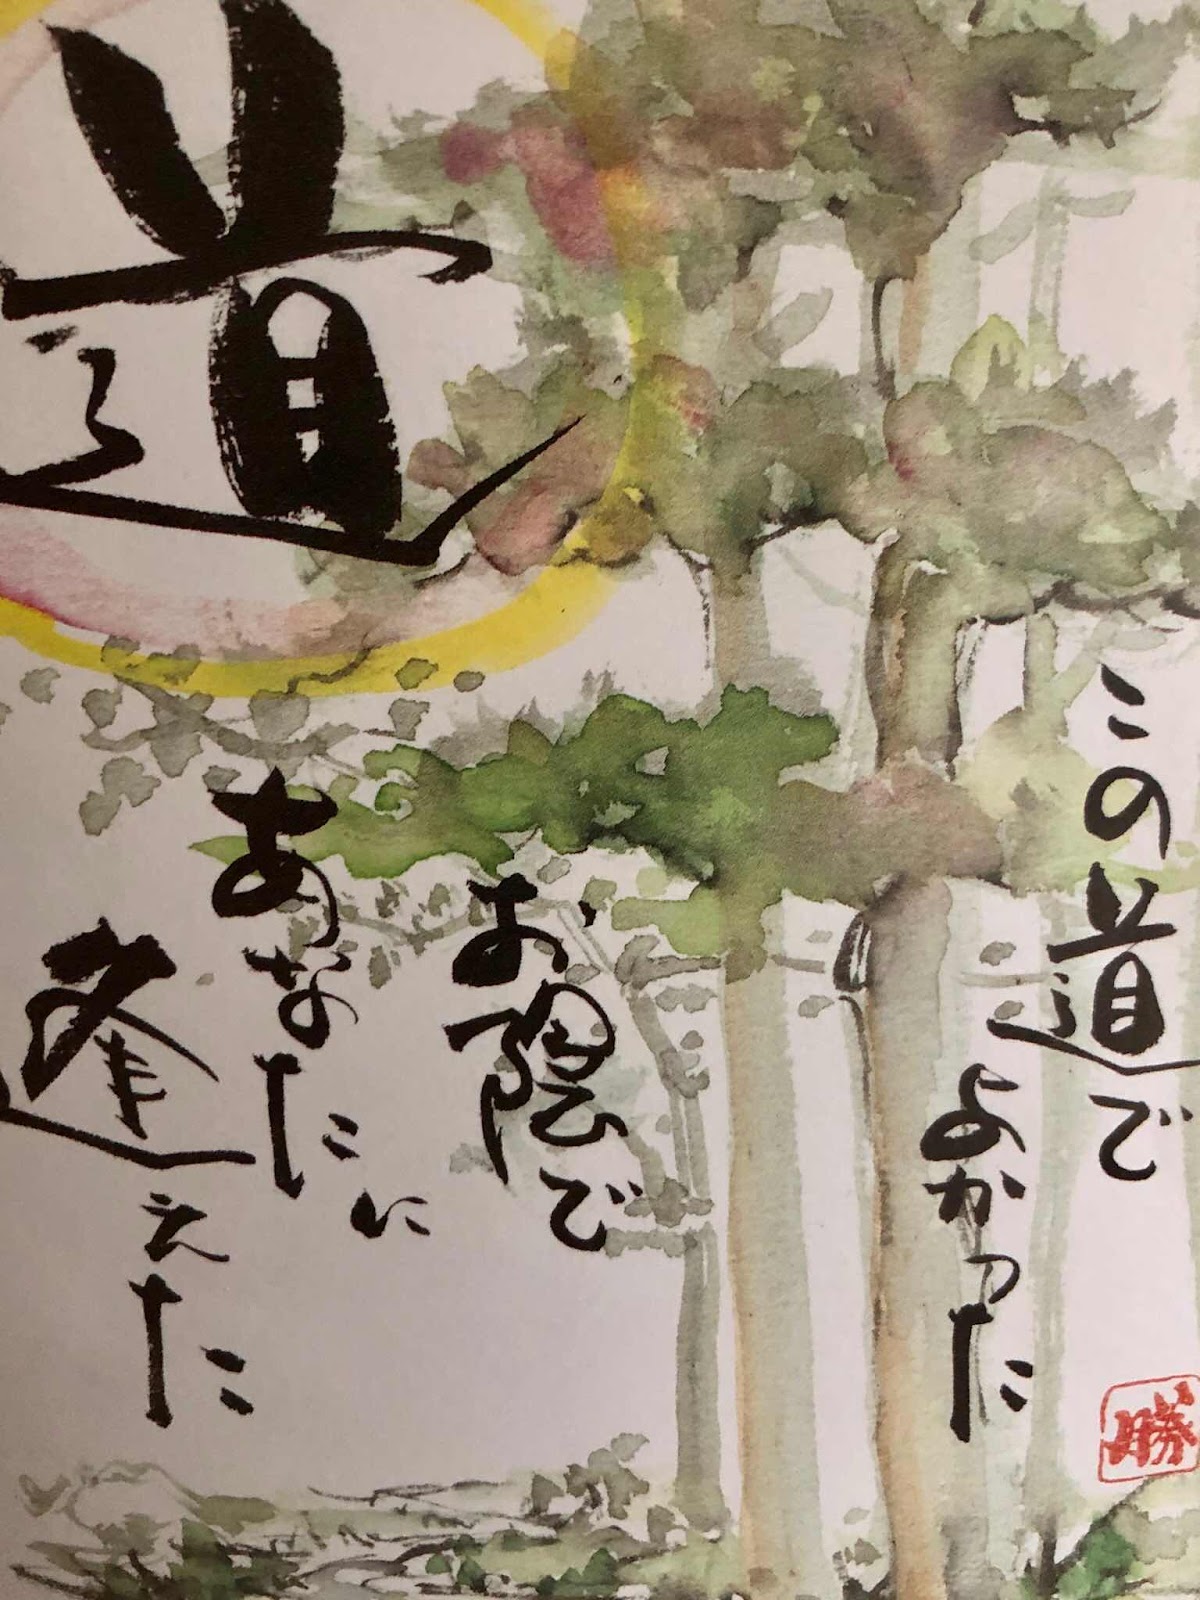 道
この道で
よかった
お陰で
あなたに
逢えた
勝